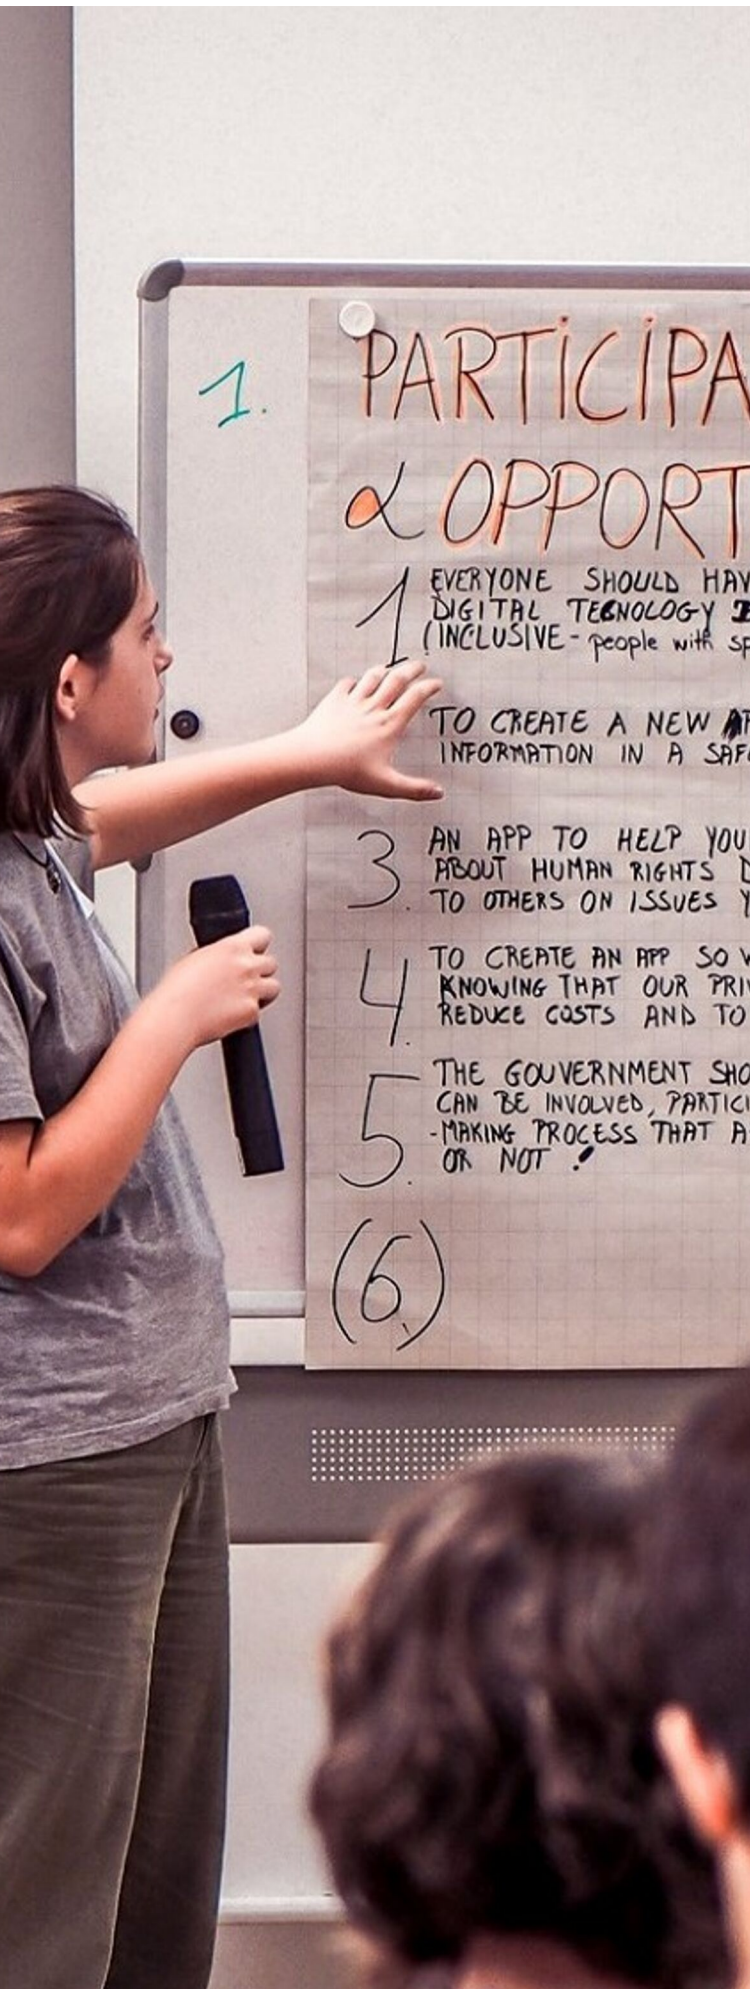 1.
PARTICIPA
& OPPORT
1 EVERYONE SHOULD HAV
DIGITAL TECNOLOGY
(INCLUSIVE - people with sp
TO CREATE A NEW AP
INFORMATION IN A SAF
3. AN APP TO HELP YOU
ABOUT HUMAN RIGHTS D
TO OTHERS ON ISSUES Y
4. TO CREATE AN APP SO W
KNOWING THAT OUR PRIV
REDUCE COSTS AND TO
5. THE GOUVERNMENT SHO
CAN BE INVOLVED, PARTICI
-MAKING PROCESS THAT A
OR NOT !
(6.)